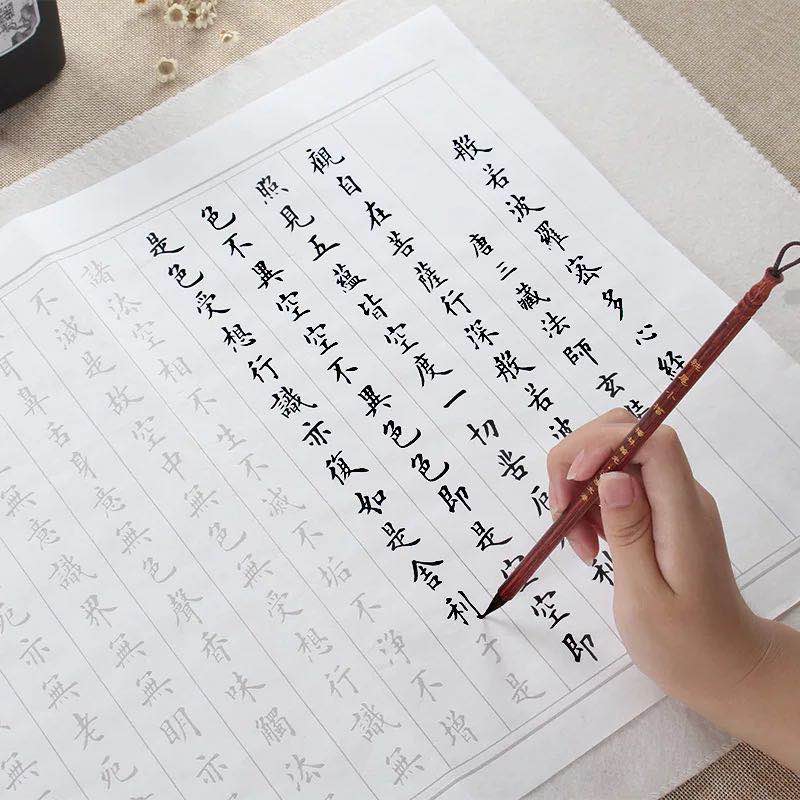 般若波羅蜜多心經
唐三藏法師玄
觀自在菩薩行深般若波
照見五蘊皆空度一切苦厄利
色不異空空不異色色即是空空即
是色受想行識亦復如是舍利子是
諸法空相不生不滅不垢不淨不增
不減是故空中無色無受想行識無
耳鼻舌身意無色聲香味觸法
無意識界無無明亦
亦無老死